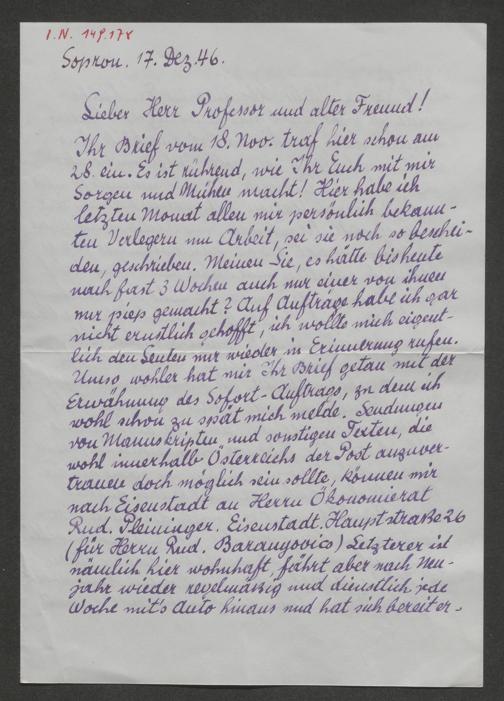 I.N. 149.178
Sopron. 17. Dez. 46.
Lieber Herr Professor und alter Freund!
Ihr Brief vom 18. Nov. traf hier schon am
28. ein. Es ist rührend, wie Ihr Euch mit mir
Sorgen und Mühen macht! Hier habe ich
letzten Monat allen mir persönlich bekann-
ten Verlegern um Arbeit, sei sie noch so beschei-
den, geschrieben. Meinen Sie, es hätte bis heute
nach fast 3 Wochen auch nur einer von ihnen
nur pieps gemacht? Auf Aufträge habe ich gar
nicht ernstlich gehofft, ich wollte mich eigent-
lich den Leuten nur wieder in Erinnerung rufen.
Umso wohler hat mir Ihr Brief getan mit der
Erwähnung des Sofort-Auftrags, zu dem ich
wohl schon zu spät mich melde. Sendungen
von Manuskripten und sonstigen Texten, die
wohl innerhalb Österreichs der Post anzuver-
trauen doch möglich sein sollte, können mir
nach Eisenstadt an Herrn Ökonomierat
Rud. Pleininger. Eisenstadt. Hauptstraße 26
(für Herrn Rud. Baranyovics) Letzterer ist
nämlich hier wohnhaft, fährt aber nach Neu-
jahr wieder regelmässig und dienstlich jede
Woche mit's Auto hinaus und hat sich bereit er-